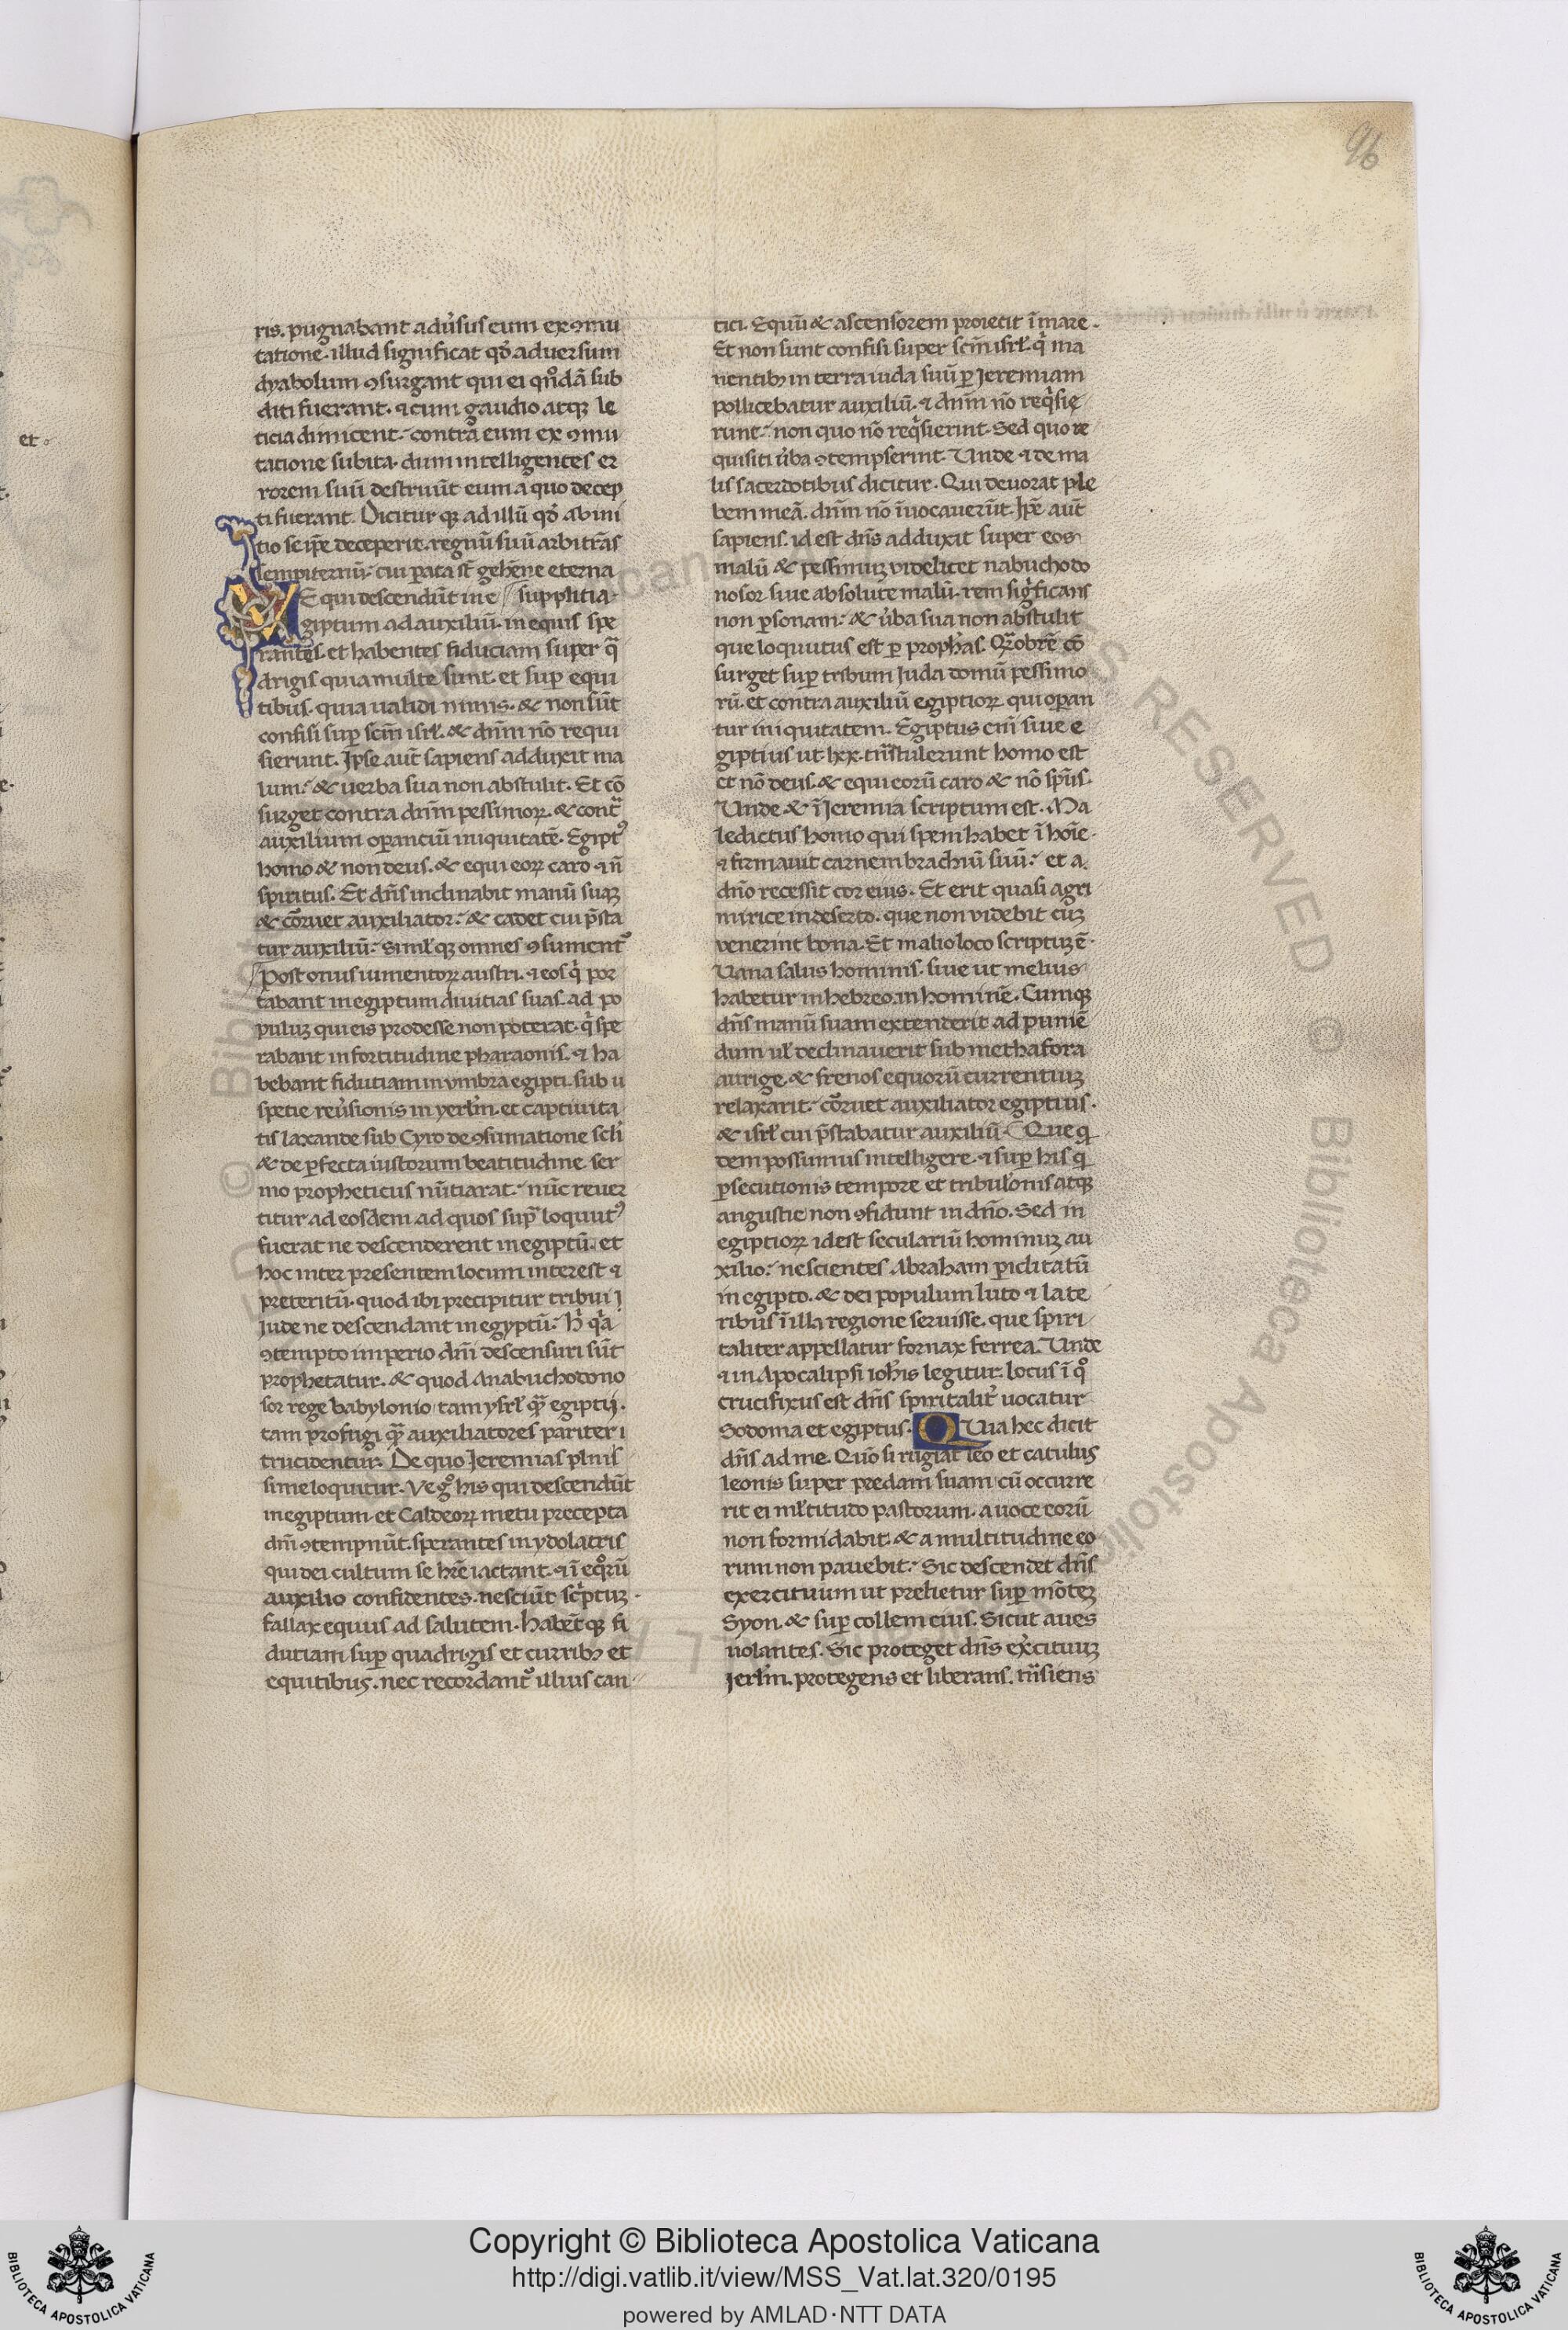 96
et.
ris. pugnabant adu̓sus eum ex ꝯmu
tatione. illud significat qđ aduersum
dyabolum ꝯsurgant qui ei qn̊dā sub
diti fuerant. ⁊ cum gaudio atqꝫ le
ticia dimicent. contra eum ex ꝯmu
tatione subita. dum intelligentes er
rorem suū destruūt eum a quo decep
ti fuerant. Dicitur qꝫ ad illū qđ ab ini
tio se ip̄e deceperit. regnū suū arbitrās
sempiternū. cui parata st̄ gehēne eterna
E qui descendūt in e supplitia.
giptum ad auxiliū. in equis spe
rantes. et habentes fiduciam super q̄
drigis quia multe sunt. et suꝑ equi
tibus. quia ualidi nimis. & non sūt
confisi suꝑ scm̄ isrł. & dnm̄ nō requi
sierunt. Ipse aut̄ sapiens adduxit ma
lum. & uerba sua non abstulit. Et cō
surget contra dnm̄ pessimoꝝ. & cont̄
auxilium oꝑanciū iniquitatē. Egipt᾿
homo & non deus. & equi eoꝝ caro ⁊ n̄
spiritus. Et dn̄s inclinabit manū suaꝫ
& corruet auxiliator. & cadet cui p̄sta
tur auxiliū. Simł qꝫ omnes ꝯsument᾿
Post onus iumentoꝝ austri. ⁊ eos q̓ por
tabant in egiptum diuitias suas. ad po
puluꝫ qui eis prodesse non poterat. q̓ spe
rabant in fortitudine pharaonis. ⁊ ha
bebant fidutiam in vmbra egipti. sub
spetie reu̓sionis in yerłm. et captiuita
tis laxande sub Cyro de ꝯsumatione scłi
& de ꝑfecta iustorum beatitudine. ser
mo propheticus nūtiarat. nūc reuer
titur ad eosdem ad quos sup̄ loquut᾿
fuerat ne descenderent in egiptū. et
hoc inter presentem locum interest ⁊
preteritū. quod ibi precipitur tribui
Iude ne descendant in egyptū. h̓ q̓a
ꝯtempto imperio dnī descensuri sūt
prophetatur. & quod a nabuchodono
sor rege babylonio tam ysrł q̄ egiptij.
tam profugi q̄ auxiliatores pariter
trucidentur. De quo Jeremias plnis
sime loquitur. Ve g̊ his qui descendūt
in egiptum. et Caldeoꝝ metu precepta
dnī ꝯtempnūt. sperantes in ydolatris
qui dei cultum se hr̄e iactant. ⁊ ī eq̊rū
auxilio confidentes. nesciūt sc̓ptuꝫ.
fallax equus ad salutem. habēt qꝫ fi
dutiam suꝑ quadrigis et curribꝫ et
equitibus. nec recordant᾿ illius can
tici. Equū & ascensorem proiecit ī mare.
Et non sunt confisi super scm̄ isrł. q̓ ma
nentibꝫ in terra iuda suū ꝑ Jeremiam
pollicebatur auxiliū. ⁊ dnm̄ nō req̓sie
runt. non quo nō req̓sierint. Sed quo re
quisiti u̓ba ꝯtempserint. Unde ⁊ de ma
lis sacerdotibus dicitur. Qui deuorat ple
bem meā. dnm̄ nō īuocauerūt. Ip̄e aut̄
sapiens. id est dn̄s adduxit super eos
malū & pessimuꝫ videlicet nabuchodo
nosor. siue absolute malū. rem sig̓ficans
non ꝑsonam. & u̓ba sua non abstulit
que loquutus est ꝑ proph̓as. Qr̄obrē cō
surget suꝑ tribum Juda domū pessimo
rū. et contra auxiliū egiptioꝝ qui oꝑan
tur iniquitatem. Egiptus eni̅ siue e
giptius ut lxx. tn̄stulerunt homo est
et nō deus. & equi eorū caro & nō spn̄s.
Unde & ī Jeremia scriptum est. Ma
ledictus homo qui spem habet ī hoīe.
⁊ firmauit carnem brachiū suū. et a
dn̄o recessit cor eius. Et erit quasi agri
mirice in deserto. que non videbit cuꝫ
venerint bona. Et in alio loco scriptuꝫ ē.
Vana salus hominis. siue ut melius
habetur in hebreo. in hominē. Cumqꝫ
dn̄s manū suam extenderit ad puniē
dum uł declinauerit sub methafora
aurige. & frenos equorū currentiuꝫ
relaxarit. corruet auxiliator egiptius.
& isrł cui p̄stabatur auxiliū. Que q
dem possumus intelligere. ⁊ suꝑ his q
ꝑsecutionis tempore et tribulōnis atqꝫ
angustie non ꝯfidunt in dn̄o. Sed in
egiptioꝝ idest seculariū hominuꝫ au
xilio. nescientes Abraham ꝑiclitatū
in egipto. & dei populum luto ⁊ late
ribus ī illa regione seruisse. que spiri
taliter appellatur fornax ferrea. Unde
⁊ in Apocalipsi ioh̄is legitur. locus ī q̊
crucifixus est dn̄s spiritalit᾿ uocatur
Sodoma et egiptus. QVia hec dicit
dn̄s ad me. Quo si rugiat leo et catulus
leonis super predam suam cū occurre
rit ei młtitudo pastorum. a uoce eorū
non formidabit. & a multitudine eo
rum non pauebit. Sic descendet dn̄s
exercituum ut prelietur suꝑ mōteꝫ
Syon. & suꝑ collem eius. Sicut aues
uolantes. Sic proteget dn̄s ex̓cituuꝫ
Jerłm. protegens et liberans. tn̄siens
Copyright © Biblioteca Apostolica Vaticana
http://digi.vatlib.it/view/MSS_Vat.lat.320/0195
powered by AMLAD·NTT DATA
BIBLIOTECA APOSTOLICA VATICANA
BIBLIOTECA APOSTOLICA VATICANA